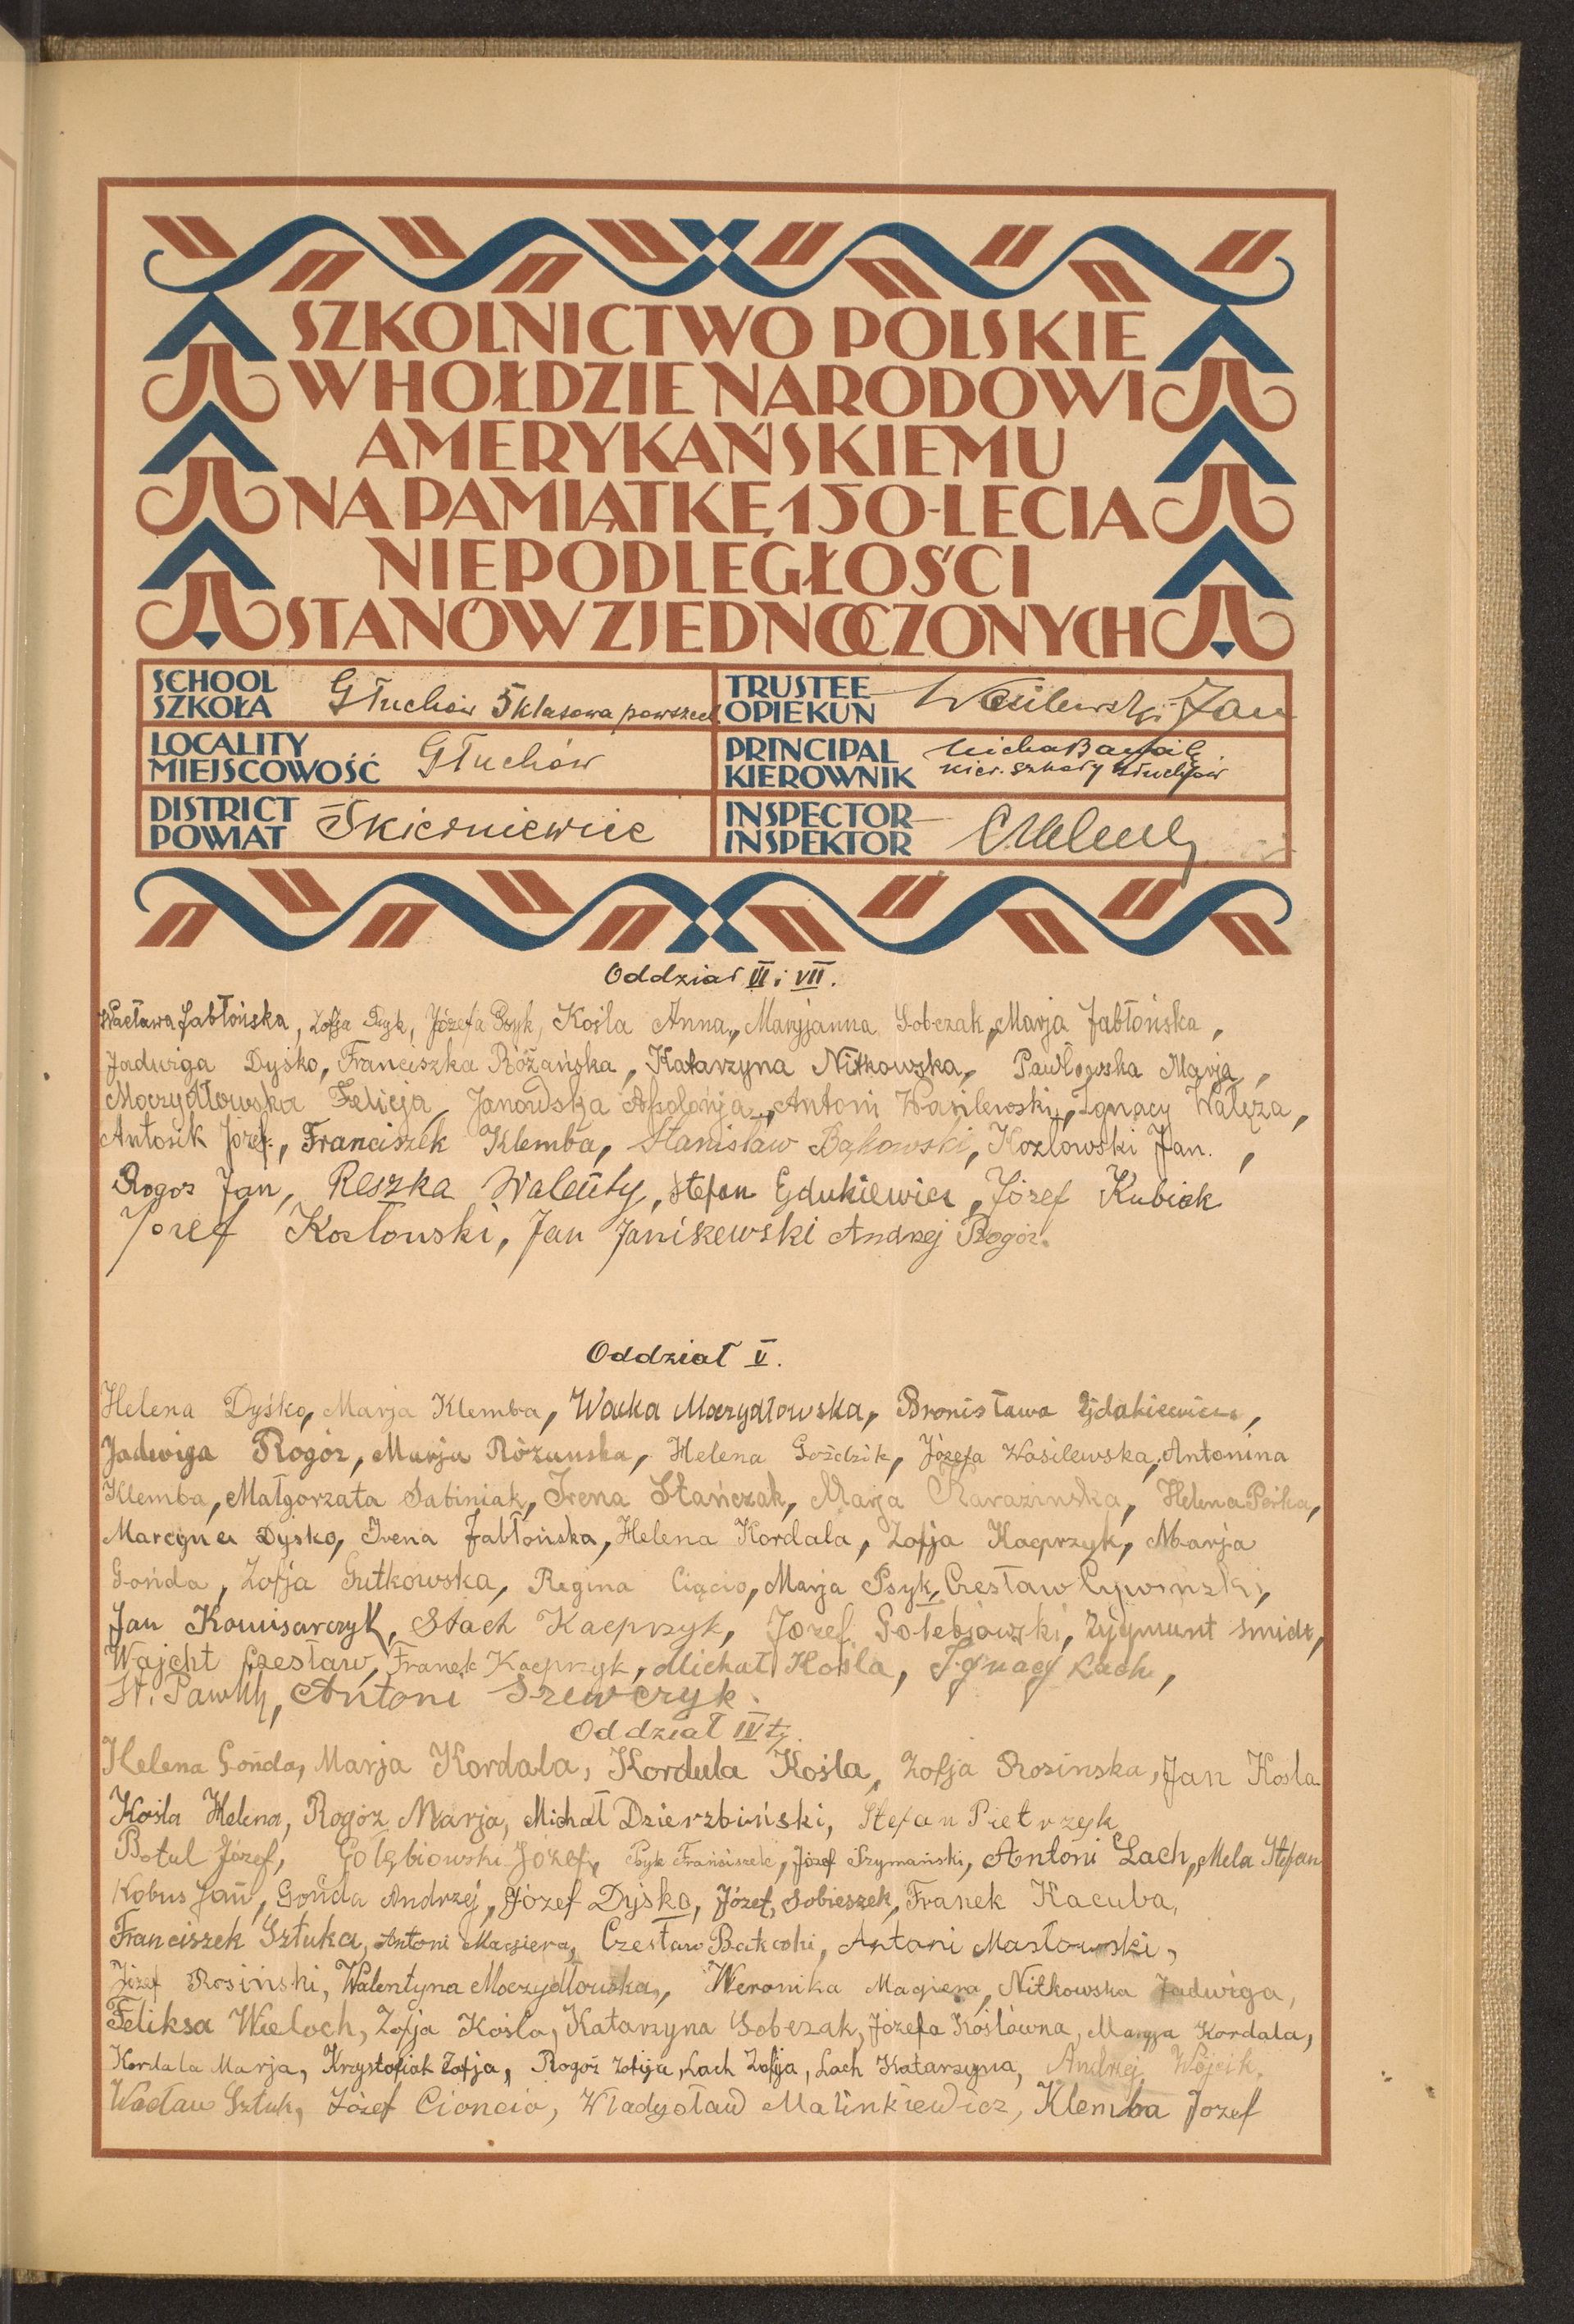 SZKOLNICTWO POLSKIE
W HOŁDZIE NARODOWI
AMERYKAŃSKIEMU
NA PAMIĄTKĘ 150-LECIA
NIEPODLEGŁOŚCI
STANÓW ZJEDNOCZONYCH
SCHOOL
SZKOŁA
Głuchów 5 klasowa powszech
TRUSTEE
OPIEKUN
Wasilewski Jan
LOCALITY
MIEJSCOWOŚĆ
Głuchów
PRINCIPAL
KIEROWNIK
kier. szkoły Głuchów
DISTRICT
POWIAT
Skierniewice
INSPECTOR
INSPEKTOR
Oddział VI i VII.
Wacława Jabłońska, Zofja Psyk, Józefa Psyk, Kośla Anna, Maryjanna Sobczak, Marja Jabłońska,
Jadwiga Dyśko, Franciszka Różańska, Katarzyna Nitkowska, Pawłowska Marja,
Moczydłowska Felicja, Janowska Apolonja, Antoni Wasilewski, Ignacy Wałęza,
Antosik Józef, Franciszek Klemba, Stanisław Bąkowski, Kozlowski Jan.,
Rogoz Jan, Reszka Walenty, Stefan Gdukiewicz, Józef Kubiak
Józef Kozłowski, Jan Janiszewski Andrzej Rogóz.
Oddział V.
Helena Dyśko, Marja Klemba, Wacka Moczydłowska, Bronisława
Jadwiga Rogóz, Marja Różanska, Helena Goździk, Józefa Wasilewska, Antonina
Klemba, Małgorzata Sabiniak, Irena Stańczak, Marja Karazinska, Helena
Marcyna Dyśko, Irena Jabłońska, Helena Kordala, Zofja Kacprzyk, Marja
Gońda, Zofja Gutkowska, Regina Ciącio, Marja Psyk, Czesław Cywinzki,
Jan Komisarczyk, Stach Kacprzyk, Jozef Gołebiowski, Zygmunt Smidt,
Wajcht Czesław, Franek Kacprzyk, Michał Kośla, Ignacy Lach,
St. Pawlik, Antoni Szewczyk.
Oddział IV ty.
Helena Gońda, Marja Kordala, Kordula Kośla, Zofja Rosinska, Jan Kosla
Kośla Helena, Rogóz Marja, Michał Dzierzbiński, Stefan Pietrzyk
Botul Józef, Gołębiowski Józef, Psyk Franciszek, Józef Szymański, Antoni Lach, Mela Stefan
Kobus Jan, Gońda Andrzej, Józef Dyśko, Józef Sobieszek, Franek Kacuba,
Franciszek Sztuka, Antoni Magiera, Czesław Bakoski, Antoni Masłowski,
Józef Rosiński, Walentyna Moczydłowska, Weronika Magiera, Nitkowska Jadwiga,
Feliksa Wieloch, Zofja Kośla, Katarzyna Sobczak, Józefa Koślówna, Maryja Kordala,
Kordala Marja, Krzystofiak Zofja, Rogóz Zofija, Lach Zofija, Lach Katarzyna, Andrzej Wójcik,
Wacław Sztuk, Józef Cioncio, Władysław Malinkiewicz, Klemba Jozef